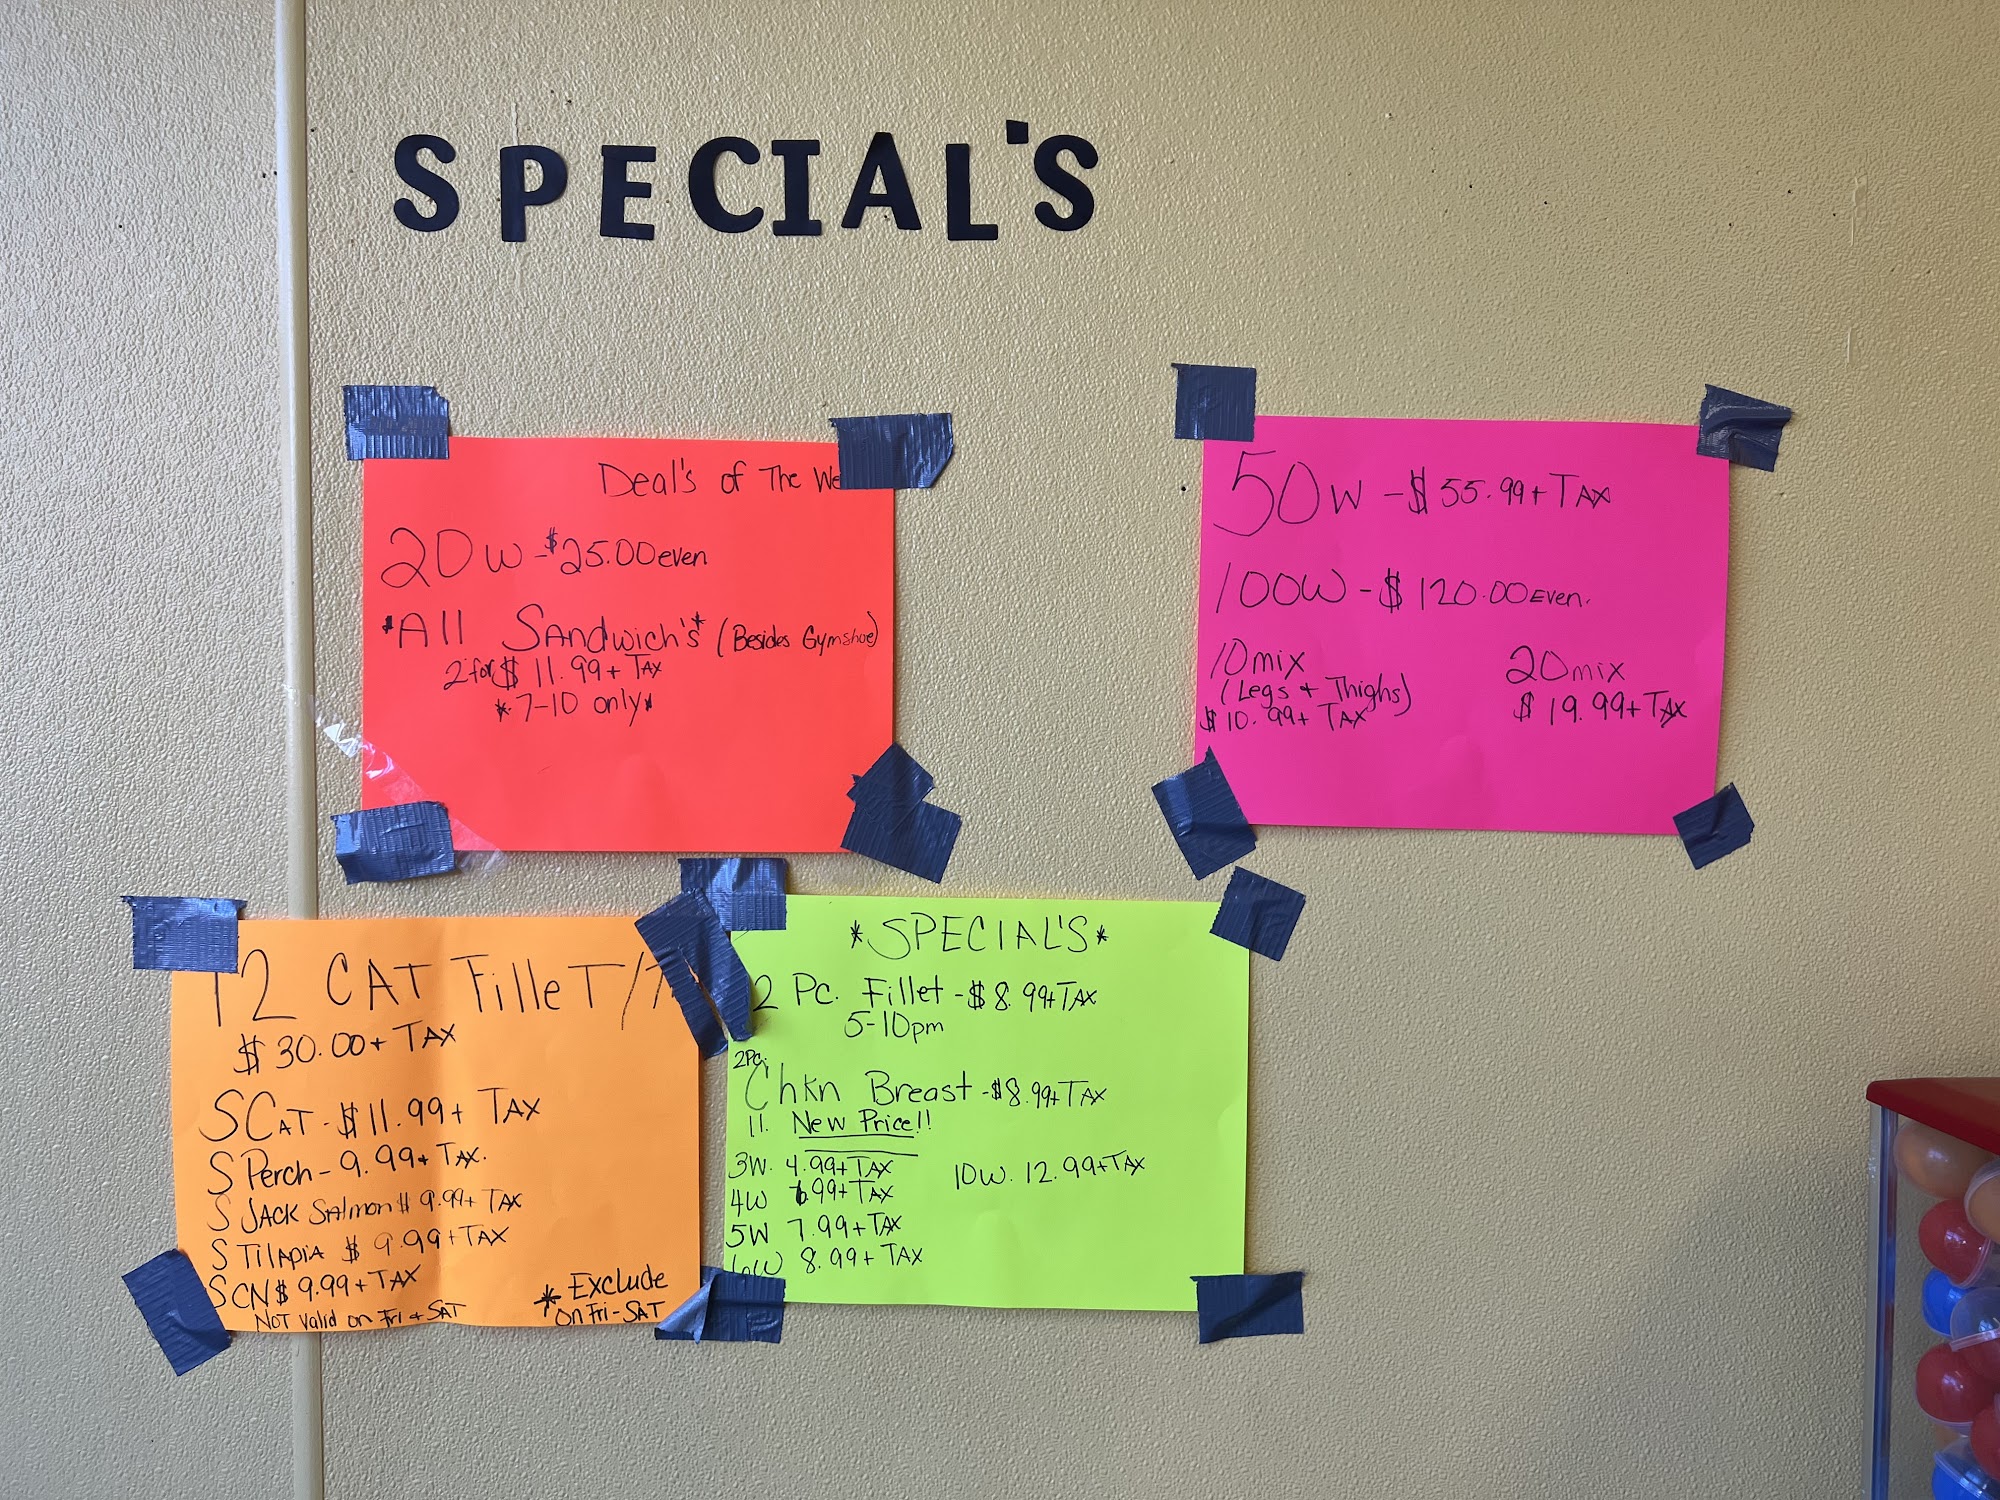 SPECIAL'S
Deal's of The We
20W - $25.00 even
*All Sandwich's* (Besides Gymshoe)
2 for $11.99 + Tax
*7-10 only*
50W - $55.99 + TAX
100W - $120.00 Even.
10mix
(Legs + Thighs)
$10.99 + TAX
20mix
$19.99 + TAX
12 CAT FilleT/
$30.00 + TAX
SCAT - $11.99 + TAX
S Perch - 9.99 + TAX.
S JACK Salmon $9.99 + TAX
S TilApiA $9.99 + TAX
S CN $9.99 + TAX
NOT Valid on Fri & SAT
* Exclude
on Fri - SAT
*SPECIAL'S*
2 Pc. Fillet - $8.99 + TAX
5-10pm
2PC.
Chkn Breast - $8.99 + TAX
11. New Price!!
3W. 4.99 + TAX
4W 6.99 + TAX
5W 7.99 + TAX
6W 8.99 + TAX
10W. 12.99 + TAX